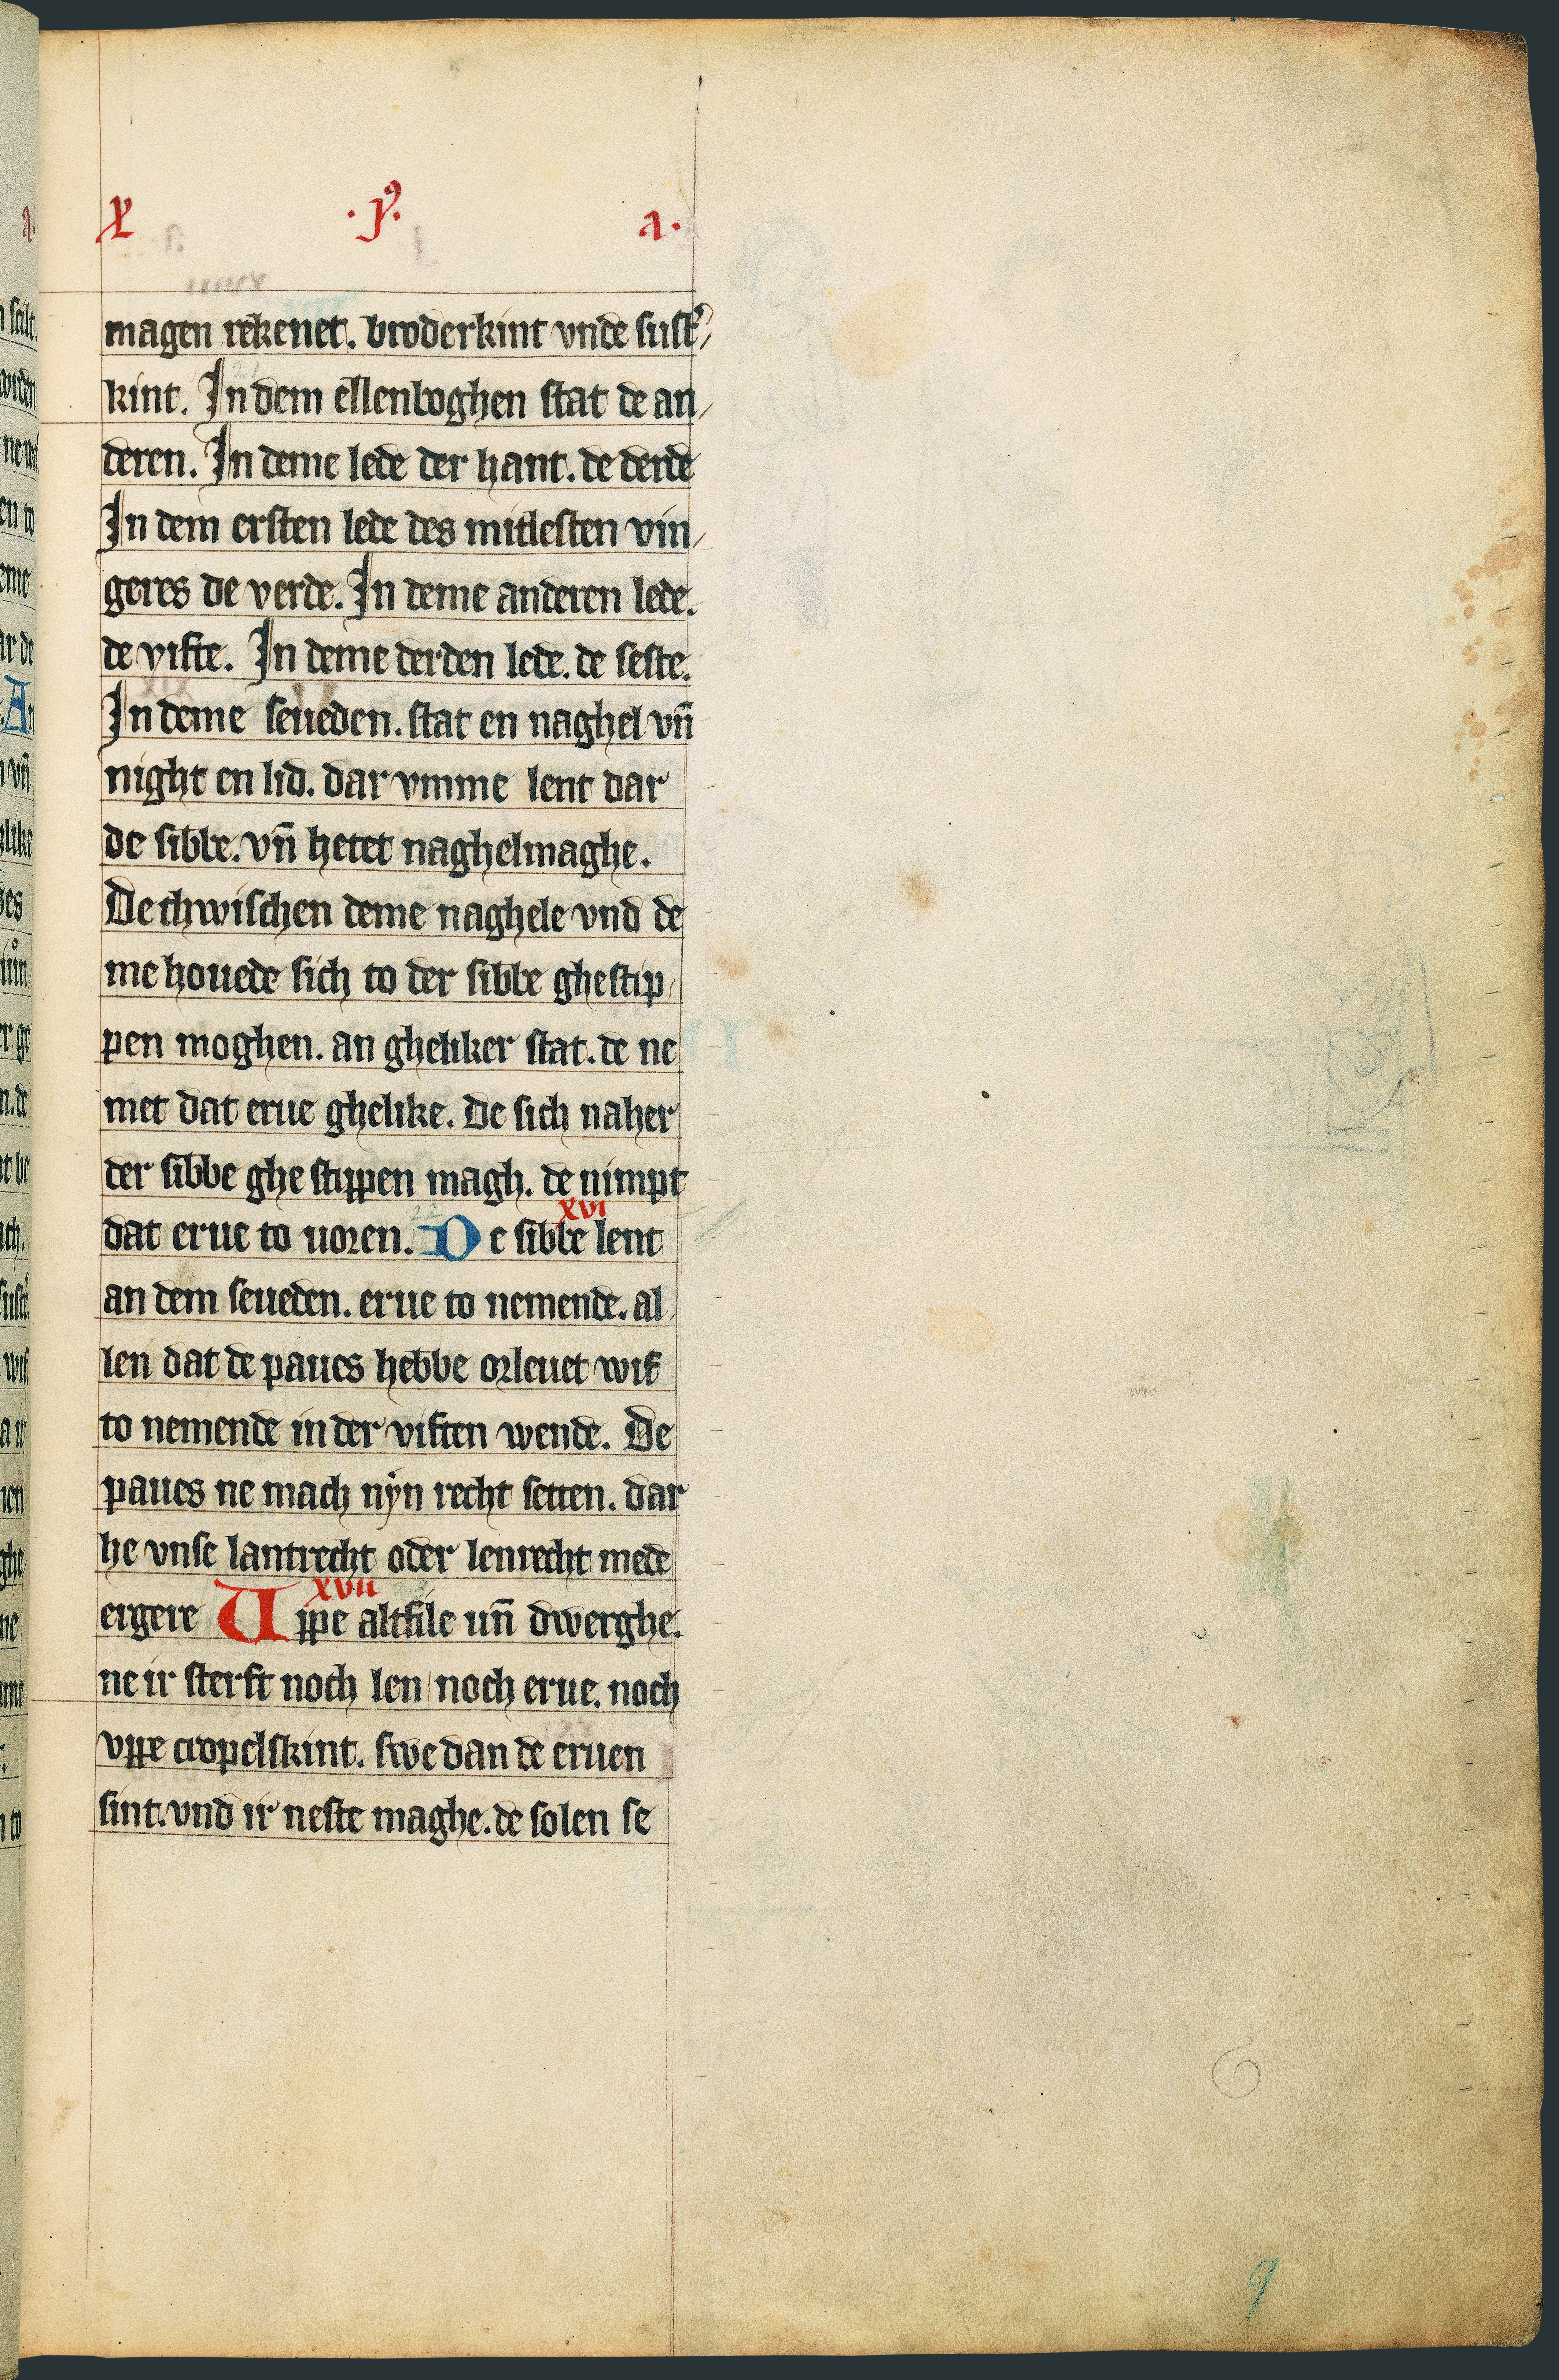 X .j⁹. a.
magen rekenet. broderkint vnde sust᾽
kint. In dem ellenboghen stat de an
deren. In deme lede der hant. de derde
In dem ersten lede des mitlesten vin
geres de verde. In deme anderen lede.
de vifte. In deme derden lede. de seste.
In deme seueden. stat en naghel vn̄
night en lid. dar vmme lent dar
de sibbe. vn̄ hetet naghelmaghe.
De thwischen deme naghele vnd de
me houede sich to der sibbe ghestip
pen moghen. an gheliker stat. de ne
met dat erue ghelike. De sich naher
der sibbe ghe stippen magh. de nimpt
xvi
dat erue to uoren. 22 De sibbe lent
an dem seueden. erue to nemende. al
len dat de paues hebbe orleuet wif
to nemende in der viften wende. De
paues ne mach nyn recht setten. dar
he vnse lantrecht oder lenrecht mede
xvii 23
ergere Uppe altfile un̄ dwerghe.
ne ir sterft noch len noch erue. noch
vppe cropelskint. swe dan de eruen
sint. vnd ir neste maghe. de solen se
9